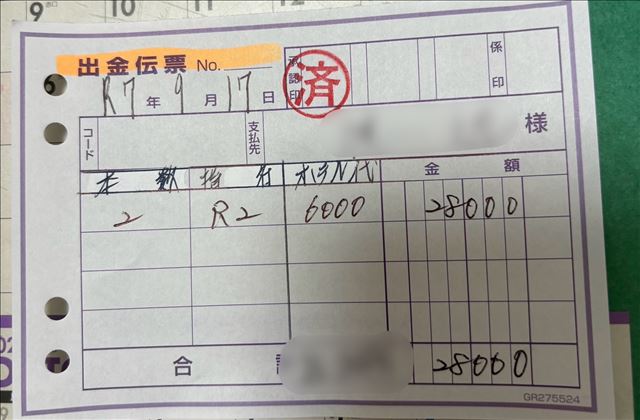 9 10 11
出金伝票 No.
承認印 済 係印
R7年 9月 17日
コード 支払先 様
本数 指名 ホテル代 金額
2 R2 6000 28000
合 28000
GR275524